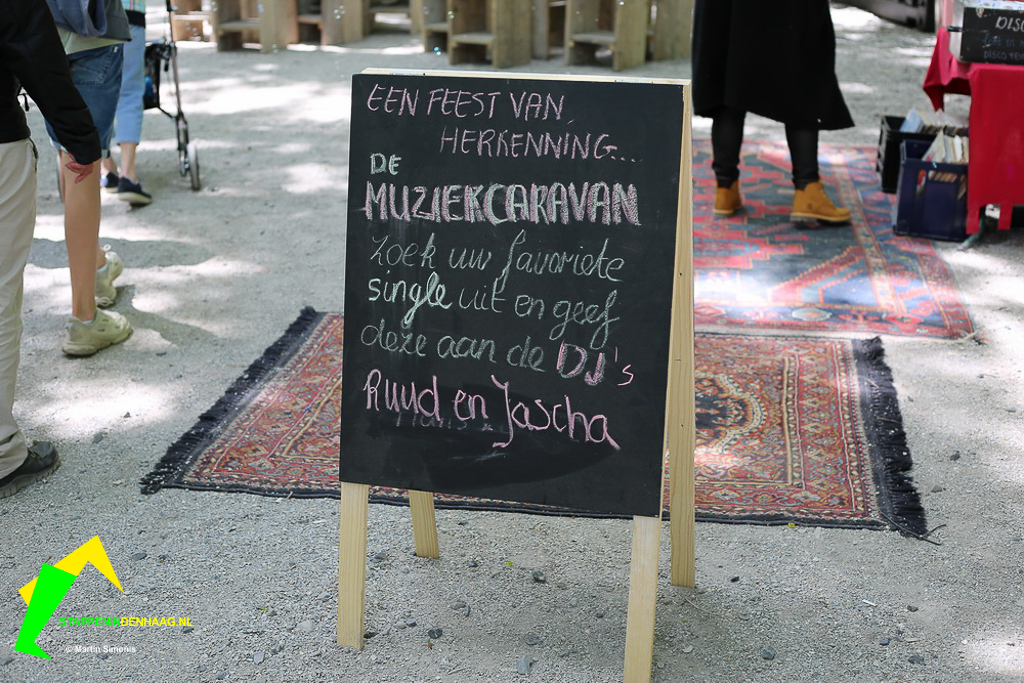 EEN FEEST VAN
HERKENNING...
DE
MUZIEKCARAVAN
Zoek uw favoriete
single uit en geef
deze aan de DJ's
Ruud en Jascha
DISC
STAPPENINDENHAAG.NL
© Martin Simonis